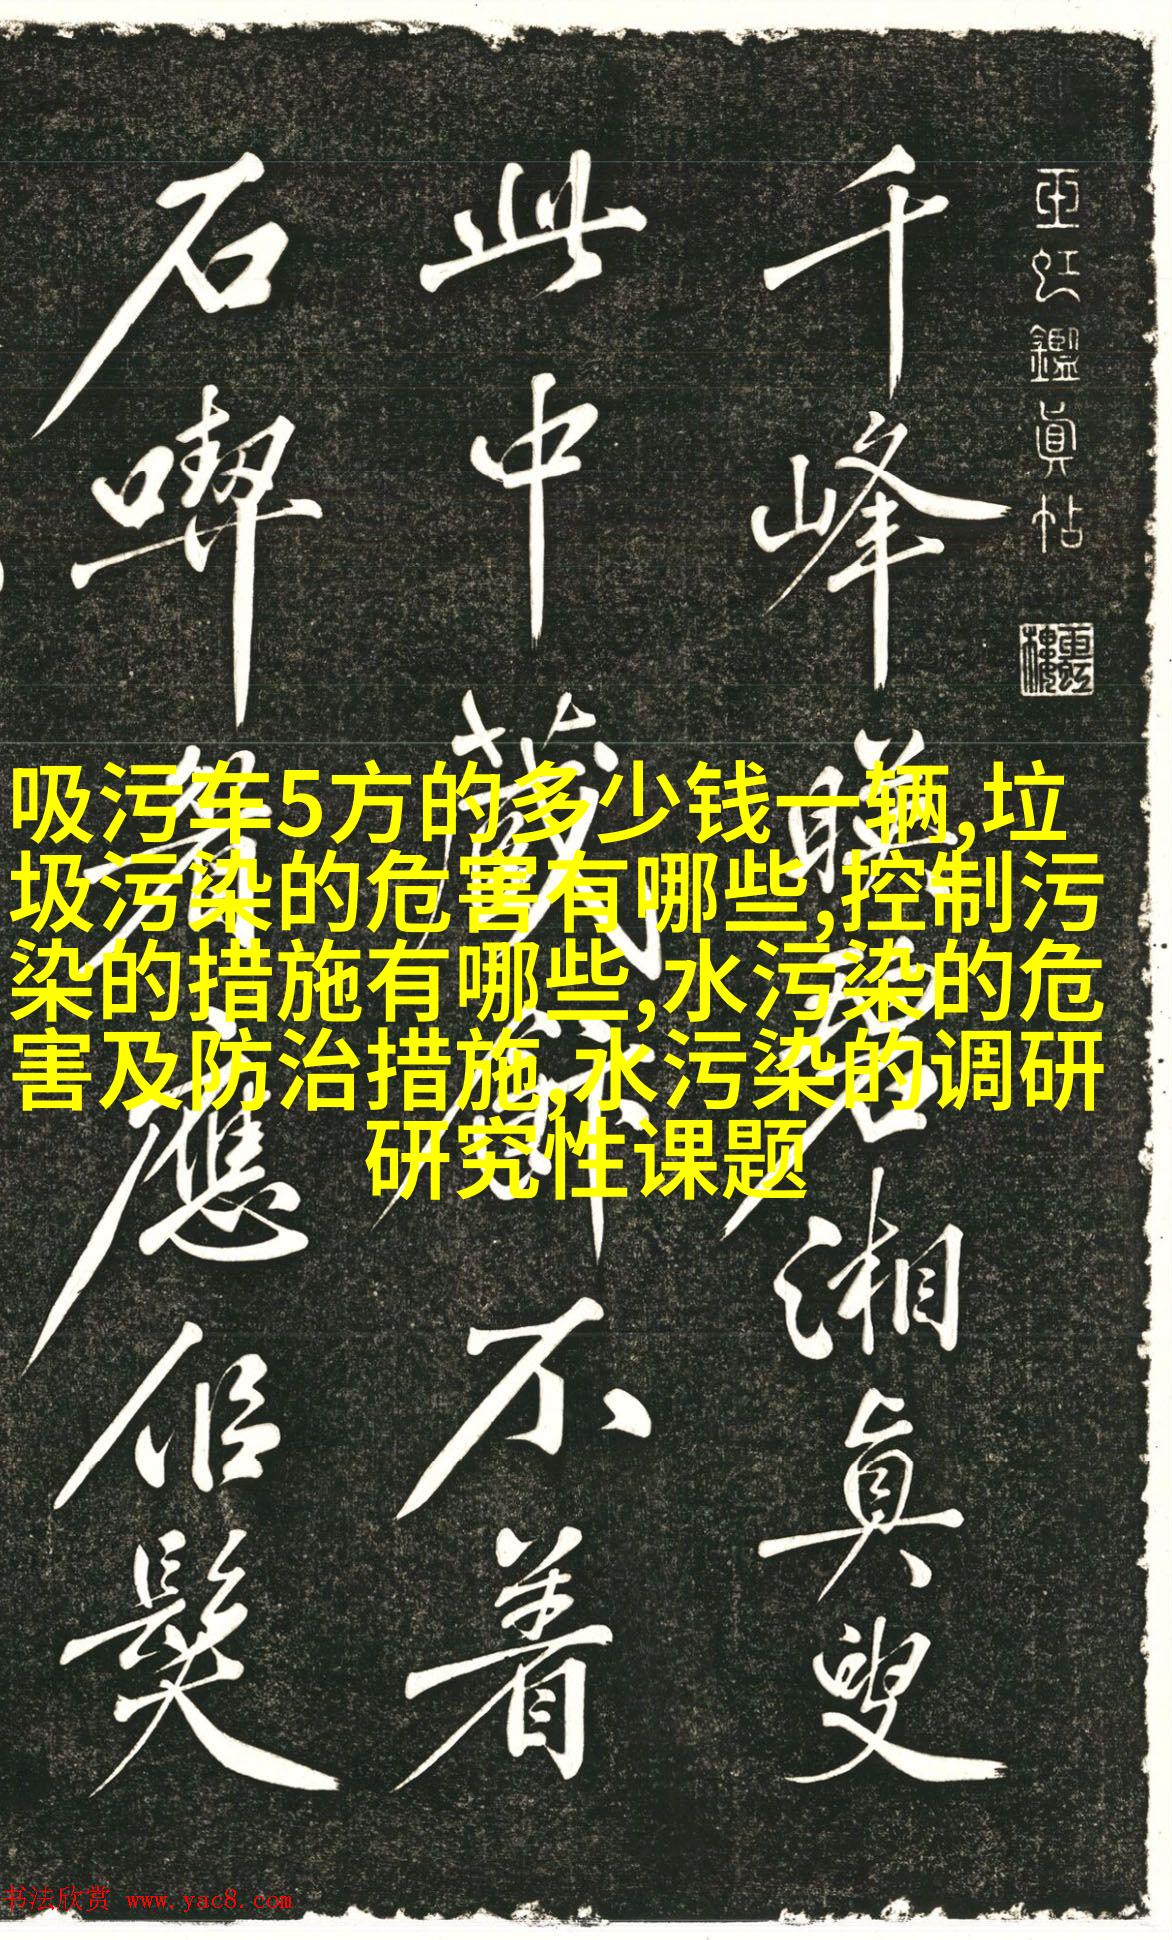 玉虹鑑真帖
玉虹樓
千峰映碧湘真叟
此中藏飰不煮
石喫眉應似髮
吸污车5方的多少钱一辆,垃
圾污染的危害有哪些,控制污
染的措施有哪些,水污染的危
害及防治措施,水污染的调研
研究性课题
书法欣赏 www.yac8.com